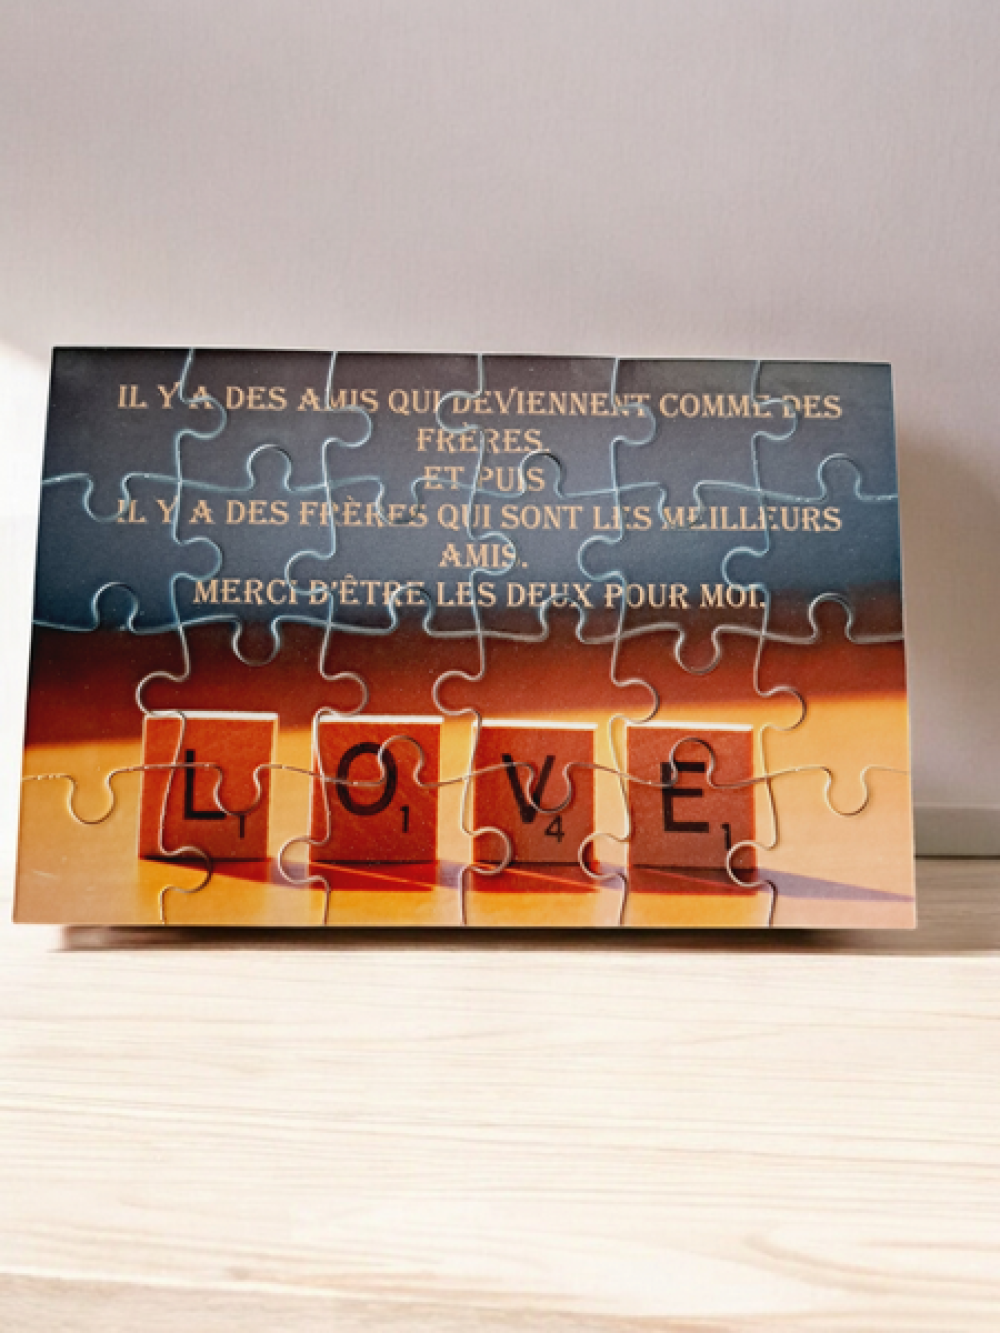 IL Y A DES AMIS QUI DEVIENNENT COMME DES
FRÈRES.
ET PUIS
IL Y A DES FRÈRES QUI SONT LES MEILLEURS
AMIS.
MERCI D'ÊTRE LES DEUX POUR MOI.
L1 O1 V4 E1